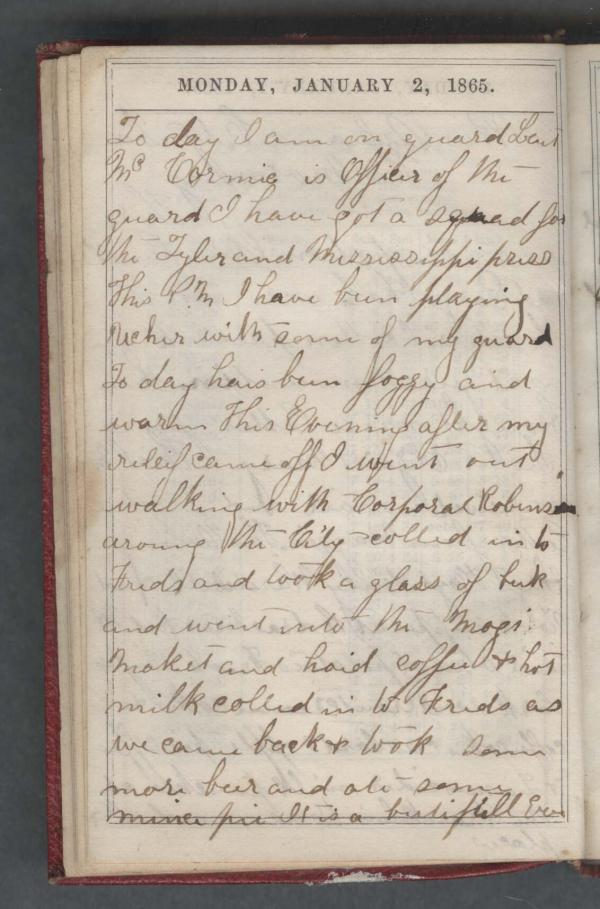 MONDAY, JANUARY 2, 1865.
To day I am on guard Leut
Mc Cormic is Officer of the
guard I have got a squad for
the Tyler and Mississippi press
This P.M I have been playing
Ucher with some of my guard
To day hais been foggy and
warm This Evening after my
releif came off I went out
walking with Corporal Robinson
aroung the City colled in to
Freds and took a glass of
and went into the
Maket and haid coffee & hot
milk colled in to Freds as
we came back & took some
more beer and ate some
mince pie It is a butifull Eve